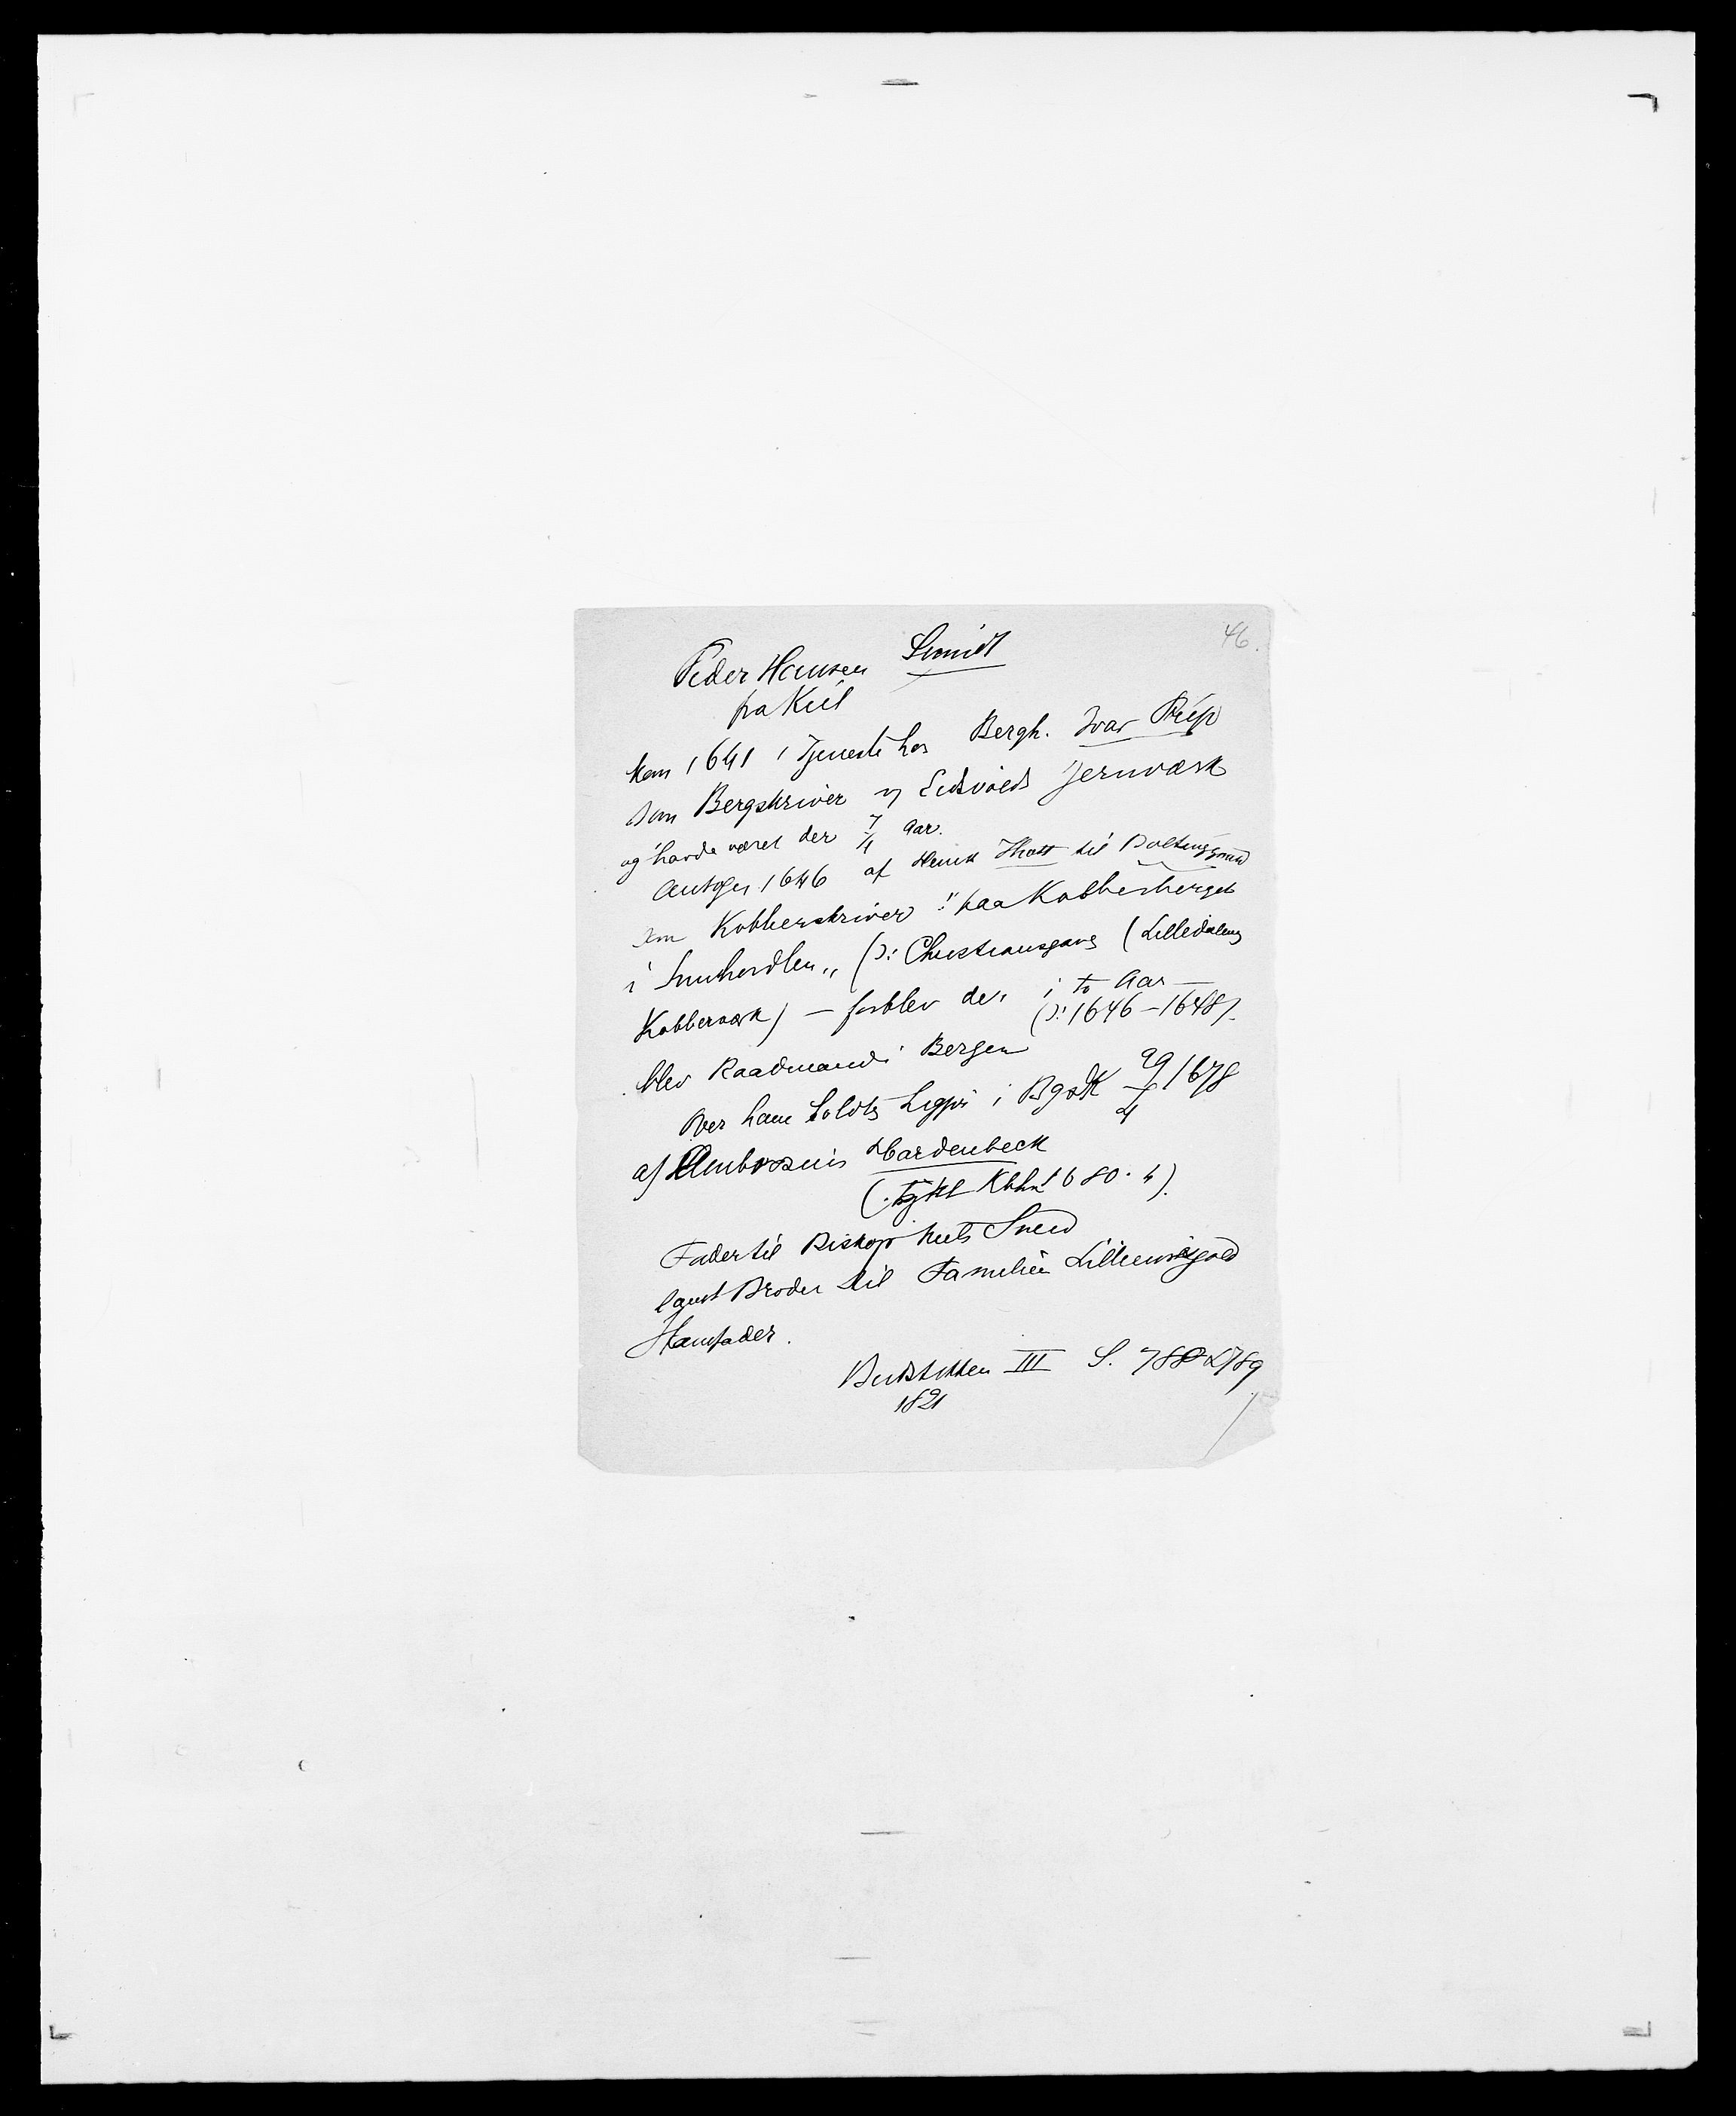 46.
Peder Hansen Smidt
fra Kiel
kom 1641 i Tjeneste hos Bergh. Ivar Prip
som Bergskriver v Eidsvolds Jernværk
og havde været der 7/4 Aar.
Antoges 1646 af Henrik Thott til Boltinggaard
som Kobberskriver "paa Kobberberget
i Sunhordlen" (ɔ: Christiansgave (Lilledalens
Kobberværk) – forblev der i to Aar –
(ɔ: 1646–1648).
blev Raadmand i Bergen
Over ham holdtes Ligpr i BgdK 29/4 1678
af Ambrosius Hardenbeck
(Trykt Kbhn 1680. 4).
Fader til Biskop Niels Smed
samt Broder til Familien Lillienskjold
Stamfader.
Budstikken III S. 788 & 789
1821